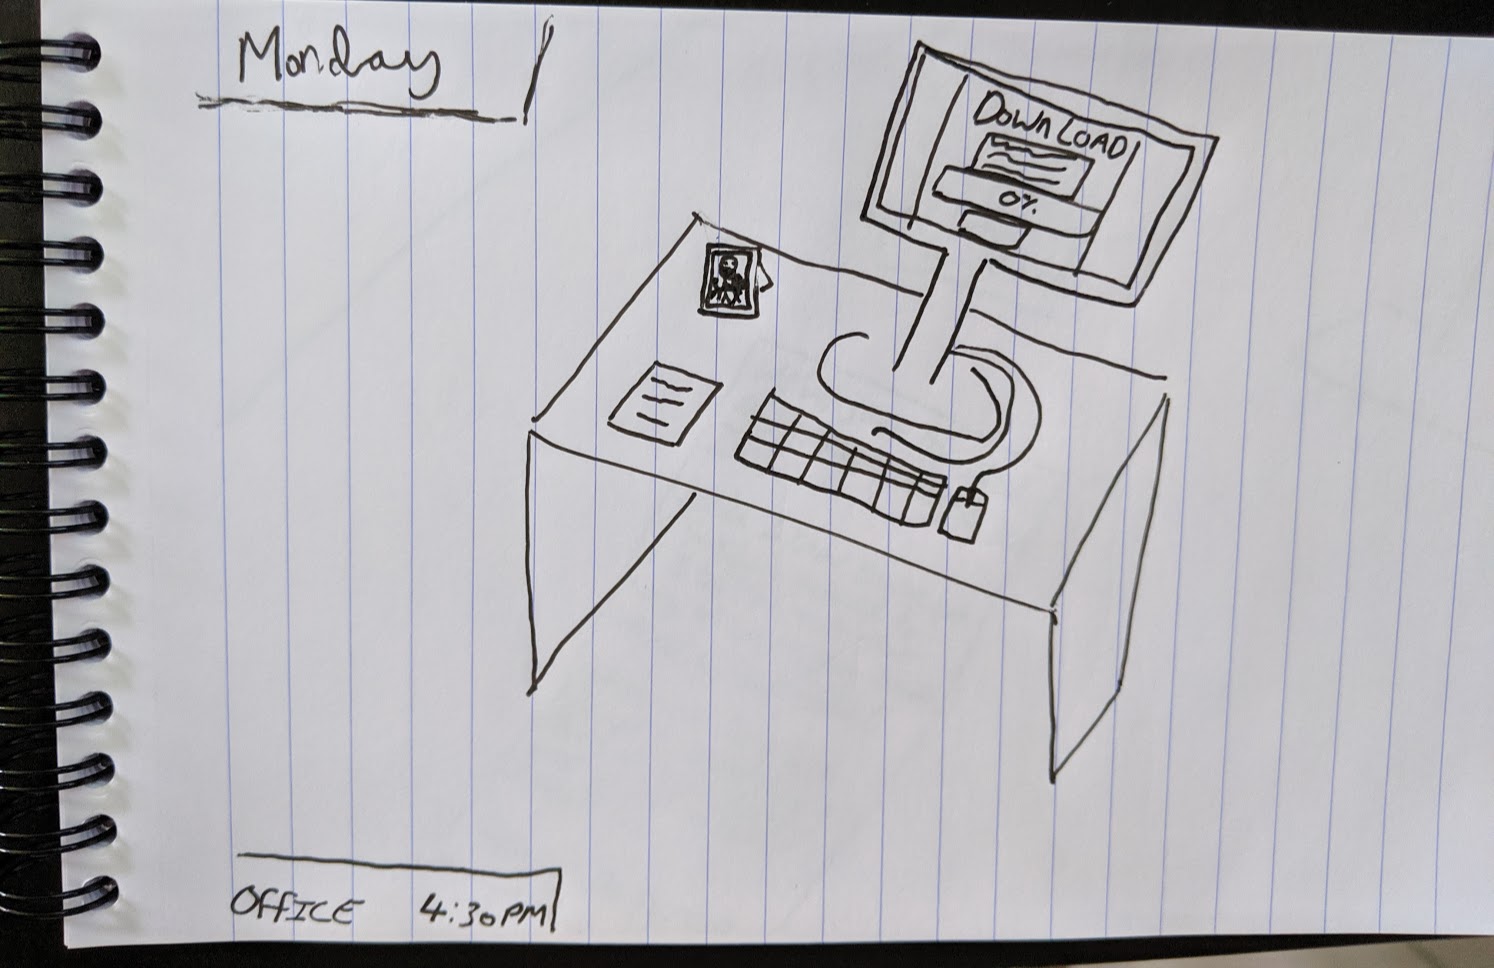 Monday
DOWNLOAD
0%
OFFICE 4:30PM